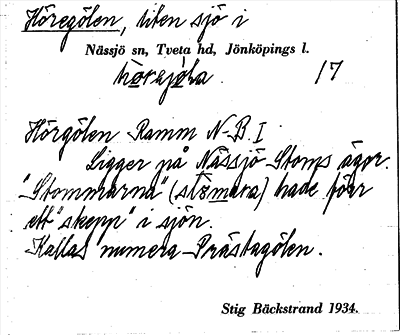 Höregölen, liten sjö i
Nässjö sn, Tveta hd, Jönköpings l.
17
Hörgölen Ramm N-B I
Ligger på Nässjö Stoms ägor.
"Stommarna" hade förr
ett "skepp" i sjön.
Kallas numera Prästagölen.
Stig Bäckstrand 1934.